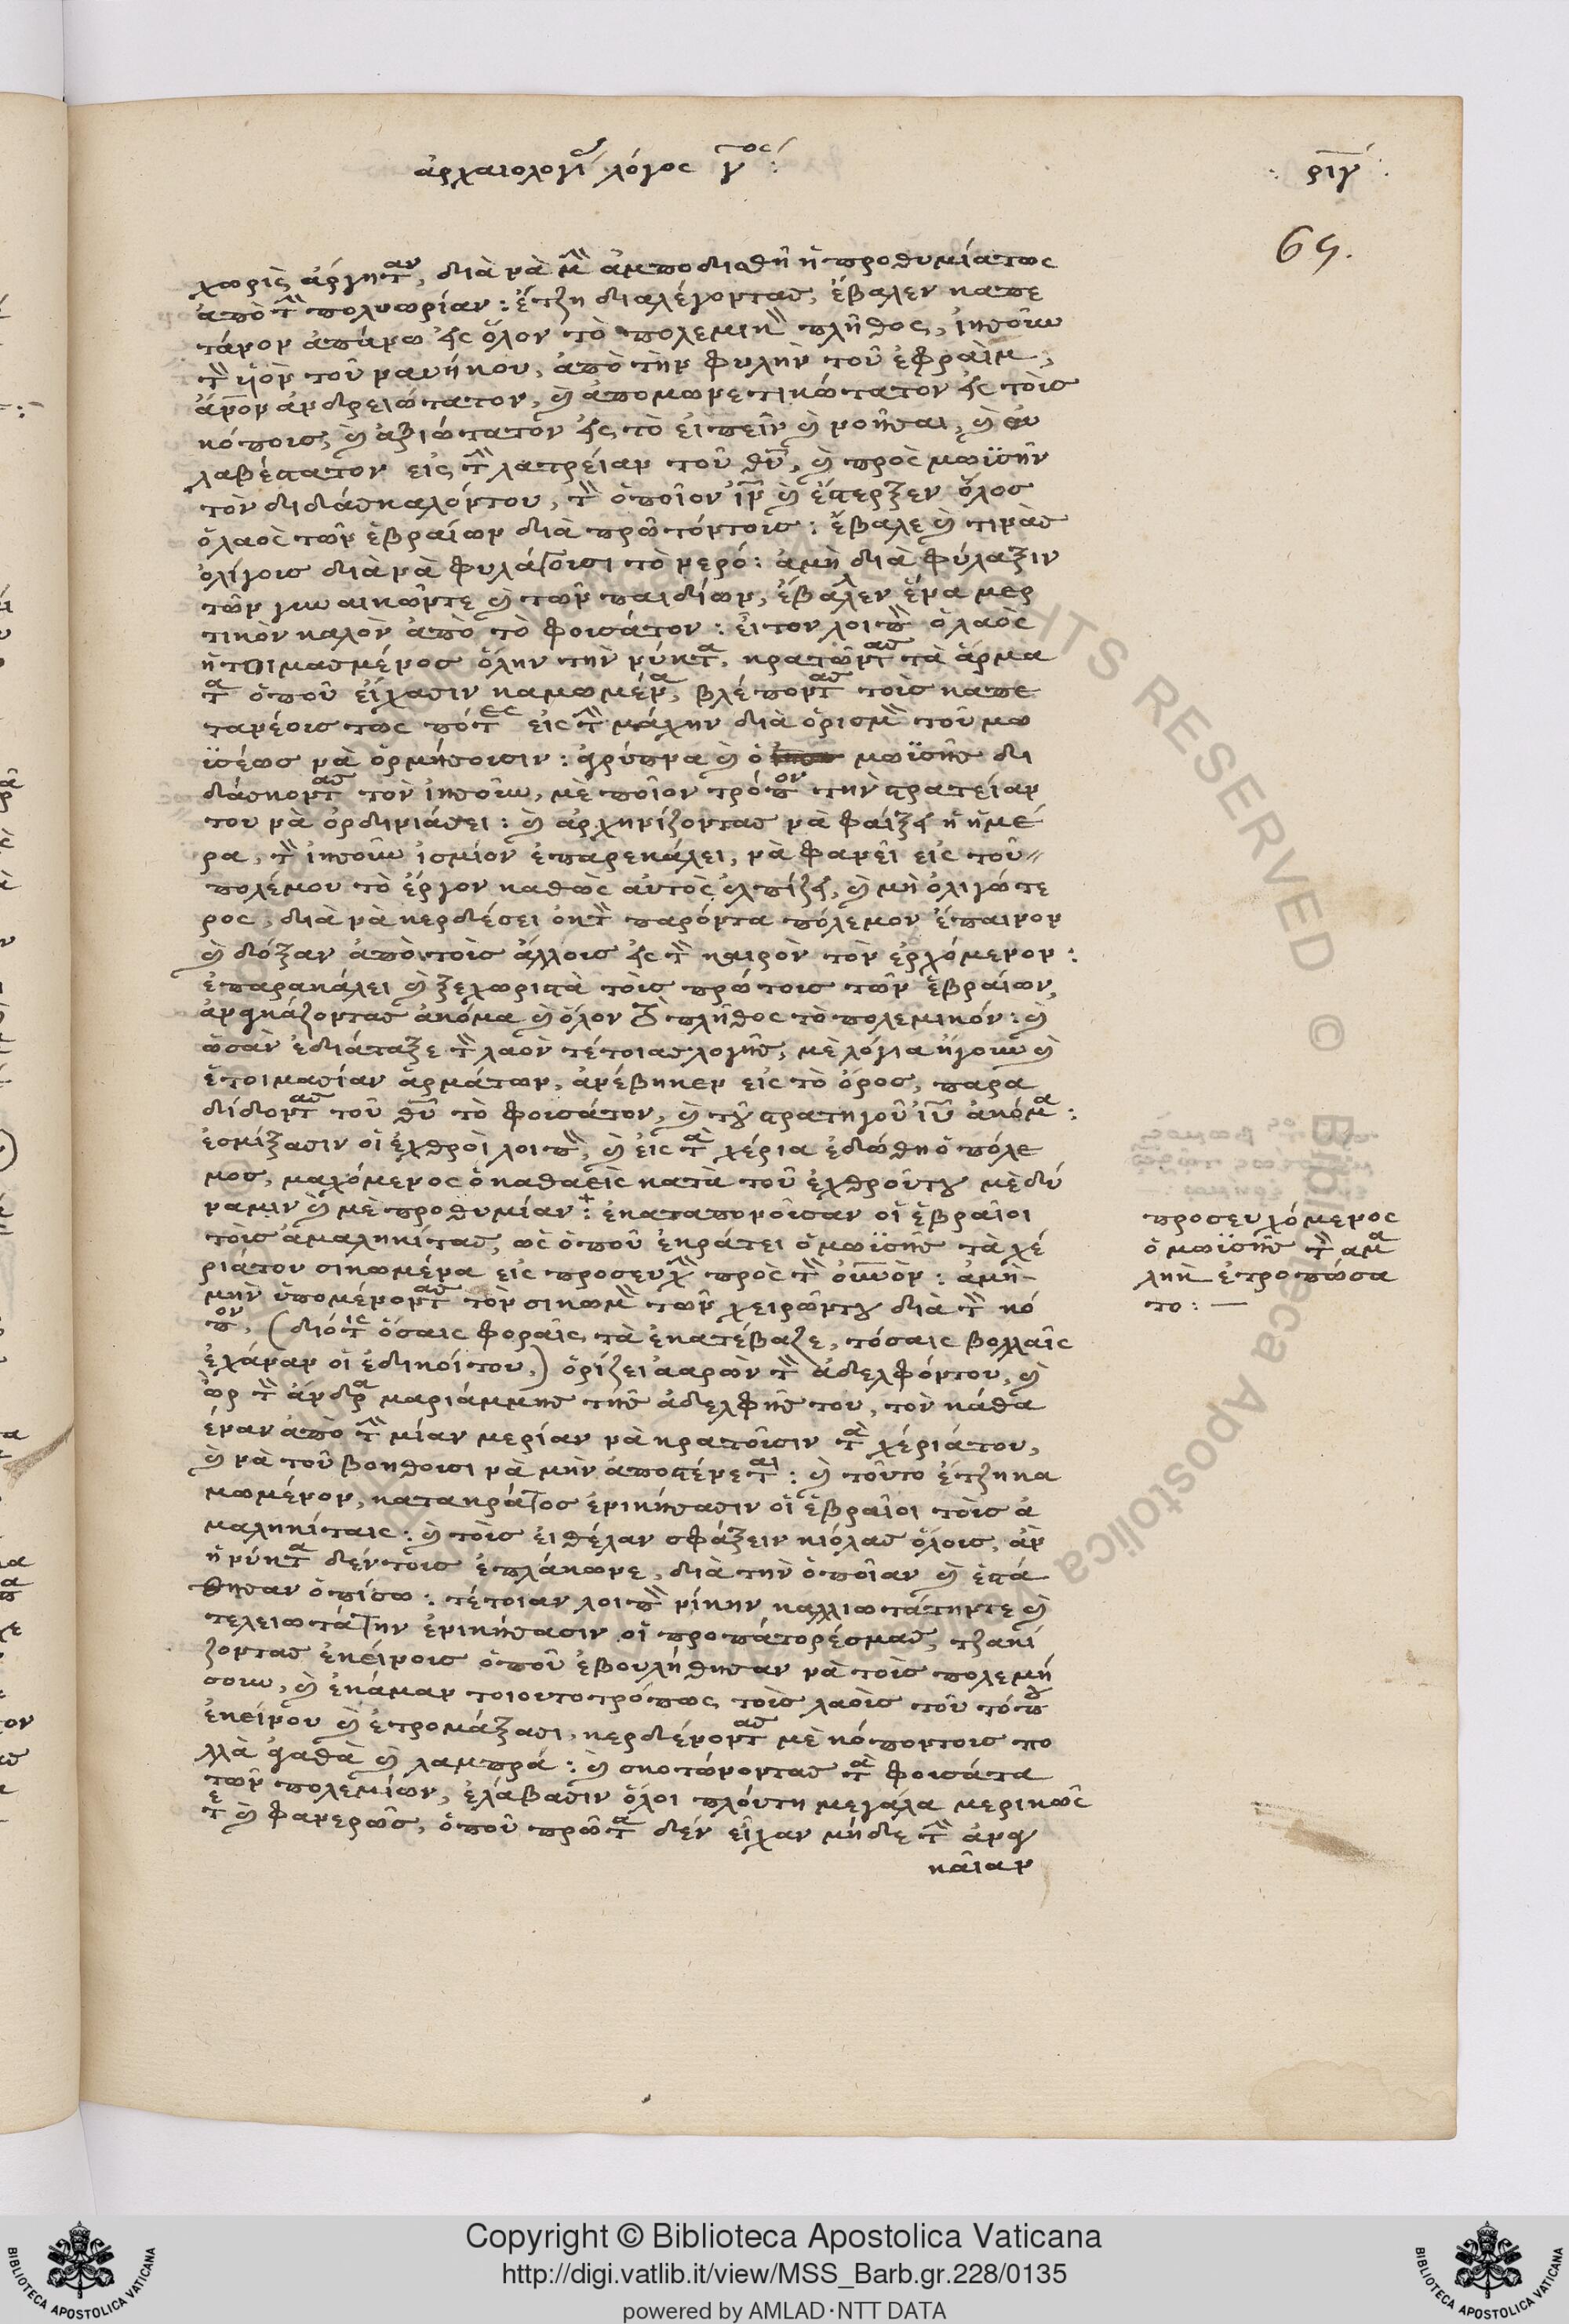 ἀρχαιολογι λόγος γος :
: ριγ :
69.
χωρὶς ἀργηταν, διὰ νὰ μὴν ἀμποδιαθῆ ἡ προθυμίατως
ἀπὸ τὴν πολυωρίαν : ἔτζη διαλέγοντας, ἔβαλεν καπε
τάνον ἀπάνω εἰς ὅλον τὸ πολεμικὸν πλῆθος, ἰησοῦν
τὸν υἱὸν τοῦ ναυήκου, ἀπὸ τὴν φυλὴν τοῦ ἐφραὶμ,
ἄνον ἀνδρειώτατον, καὶ ἀπομωνετικώτατον εἰς τοὶσ
κόποισ, καὶ ἀξιώτατον εἰς τὸ εἰπεῖν καὶ νοῆσαι, καὶ εὐ
λαβέστατον εἰς τὴν λατρείαν τοῦ θῦ, καὶ πρὸς μωϊσῆν
τὸν διδάσκαλόντου, τὸν ὁποῖον καὶ ἔστερξεν ὅλοσ
ὁλαὸς τῶν ἑβραίων διὰ πρῶτόντοισ : ἔβαλε καὶ τινὰσ
ὀλίγοισ διὰ νὰ φυλάγοισι τὸ νερό : ἀμὴ διὰ φύλαξιν
τῶν γυναικῶντε καὶ τῶν παιδίων, ἔβαλεν ἕνα μερ
τικὸν καλὸν ἀπὸ τὸ φουσάτον : εἶτον λοιπὸν ὁλαὸς
ἡτοιμασμένος ὅλην τὴν νύκτα, κρατῶντας τὰ ἄρμα
τα ὁποῦ εἴχασιν καμωμένα, βλέποντας τοὶσ καπε
τανέοισ τως πότες εἰς τὴν μάχην διὰ ὁρισμὸν τοῦ μω
ϊσέωσ νὰ ὁρμήσοισιν : ἀγρύπνα καὶ ὁ μωϊσῆσ δι
δάσκοντας τὸν ἰησοῦν, μὲ ποῖον τρόπον τὴν στρατείαν
του νὰ ὀρδινιάσει : καὶ ἀρχηνίζοντασ νὰ φαίξει ἡ ἡμέ
ρα, τὸν ἰησοῦν ἰσμίον ἐπαρεκάλει, νὰ φανεῖ εἰς τοῦ
πολέμου τὸ ἔργον καθὼς αὐτὸς ἐλπίζει, καὶ μὴ ὀλιγώτε
ρος, διὰ νὰ κερδέσει ὀκτὸν παρόντα πόλεμον ἔπαινον
καὶ δόξαν ἀπὸ τοὶσ ἄλλοισ εἰς τὸν καιρὸν τὸν ἐρχόμενον :
ἐπαρακάλει καὶ ξεχωριστὰ τοὶσ πρώτοισ τῶν ἑβραίων,
ἀναγκάζοντασ ἀκόμα καὶ ὅλον τὸ πλῆθος τὸ πολεμικόν : καὶ
ὡσὰν ἐδιάταξε τὸν λαὸν τέτοιασ λογῆσ, μὲ λόγια ἤγουν καὶ
ἑτοιμασίαν ἁρμάτων, ἀνέβηκεν εἰς τὸ ὄροσ, παρα
δίδοντας τοῦ θῦ τὸ φουσάτον, καὶ τοῦ στρατηγοῦ ἰῦ ἀκόμα :
ἐσμίξασιν οἱ ἐχθροὶ λοιπὸν, καὶ εἰς τὰ χέρια ἐδώθη ὁ πόλε
μοσ, μαχόμενος ὁ καθαεὶς κατὰ τοῦ ἐχθροῦντου μὲ δύ
ναμιν καὶ μὲ προθυμίαν : ἐκαταπονοῦσαν οἱ ἑβραῖοι
τοὶσ ἀμαληκίτασ, ὡς ὁποῦ ἐκράτει ὁ μωϊσῆσ τὰ χέ
ριάτου σικωμένα εἰς προσευχὴν πρὸς τὸν οὐνὸν : ἀμὴ
μὴν ὑπομένοντας τὸν σικωμὸν τῶν χειρῶντου διὰ τὸν κό
πον, (διότις ὅσαις φοραῖς τὰ ἐκατέβαζε, τόσαις βολλαῖς
ἐχάναν οἱ ἐδικοίτου,) ὁρίζει ἀαρὼν τὸν ἀδελφόντου, καὶ
ὢρ τὸν ἄνδρα μαριάμμησ τῆσ ἀδελφῆσ του, τὸν κάθα
έναν ἀπὸ τὴν μίαν μερίαν νὰ κρατοῦσιν τὰ χέριάτου,
καὶ νὰ τοῦ βοηθοισι νὰ μὴν ἀποστένεται : καὶ τοῦτο ἔτζη κα
μωμένον, κατακράτος ἐνικήσασιν οἱ ἑβραῖοι τοὶσ ἀ
μαληκίταις : καὶ τοὶσ εἰθέλαν σφάξειν κιόλασ ὅλοισ, ἀν
ἡ νύκτα δέν τοισ ἐπλάκωνε, διὰ τὴν ὁποῖαν καὶ ἐστά
θησαν ὀπίσω : τέτοιαν λοιπὸν νίκην καλλιωτάτηντε καὶ
τελειωτάτην ἐνικήσασιν οἱ προπάτορέσμασ, τζακί
ζοντασ ἐκείνοισ ὁποῦ ἐβουλήθησαν νὰ τοὶσ πολεμή
σουν, καὶ ἐκάμαν τοιουτοτρόπως τοὶσ λαοὶσ τοῦ τόπου
ἐκείνου καὶ ἐτρομάξασι, κερδένοντας μὲ κόποντοισ πο
λλὰ ἀγαθὰ καὶ λαμπρά : καὶ σκοτώνοντασ τὰ φουσάτα
τῶν πολεμίων, ἐλάβασιν ὅλοι πλούτη μεγάλα μερικῶς
τε καὶ φανερῶσ, ὁποῦ πρῶτα δέν εἶχαν μήδε τὴν ἀναγ
καῖαν
προσευχόμενος
ὁ μωϊσῆσ τὸν αμα
λὴκ ἐτροπώσα
το : —
Copyright © Biblioteca Apostolica Vaticana
http://digi.vatlib.it/view/MSS_Barb.gr.228/0135
powered by AMLAD·NTT DATA